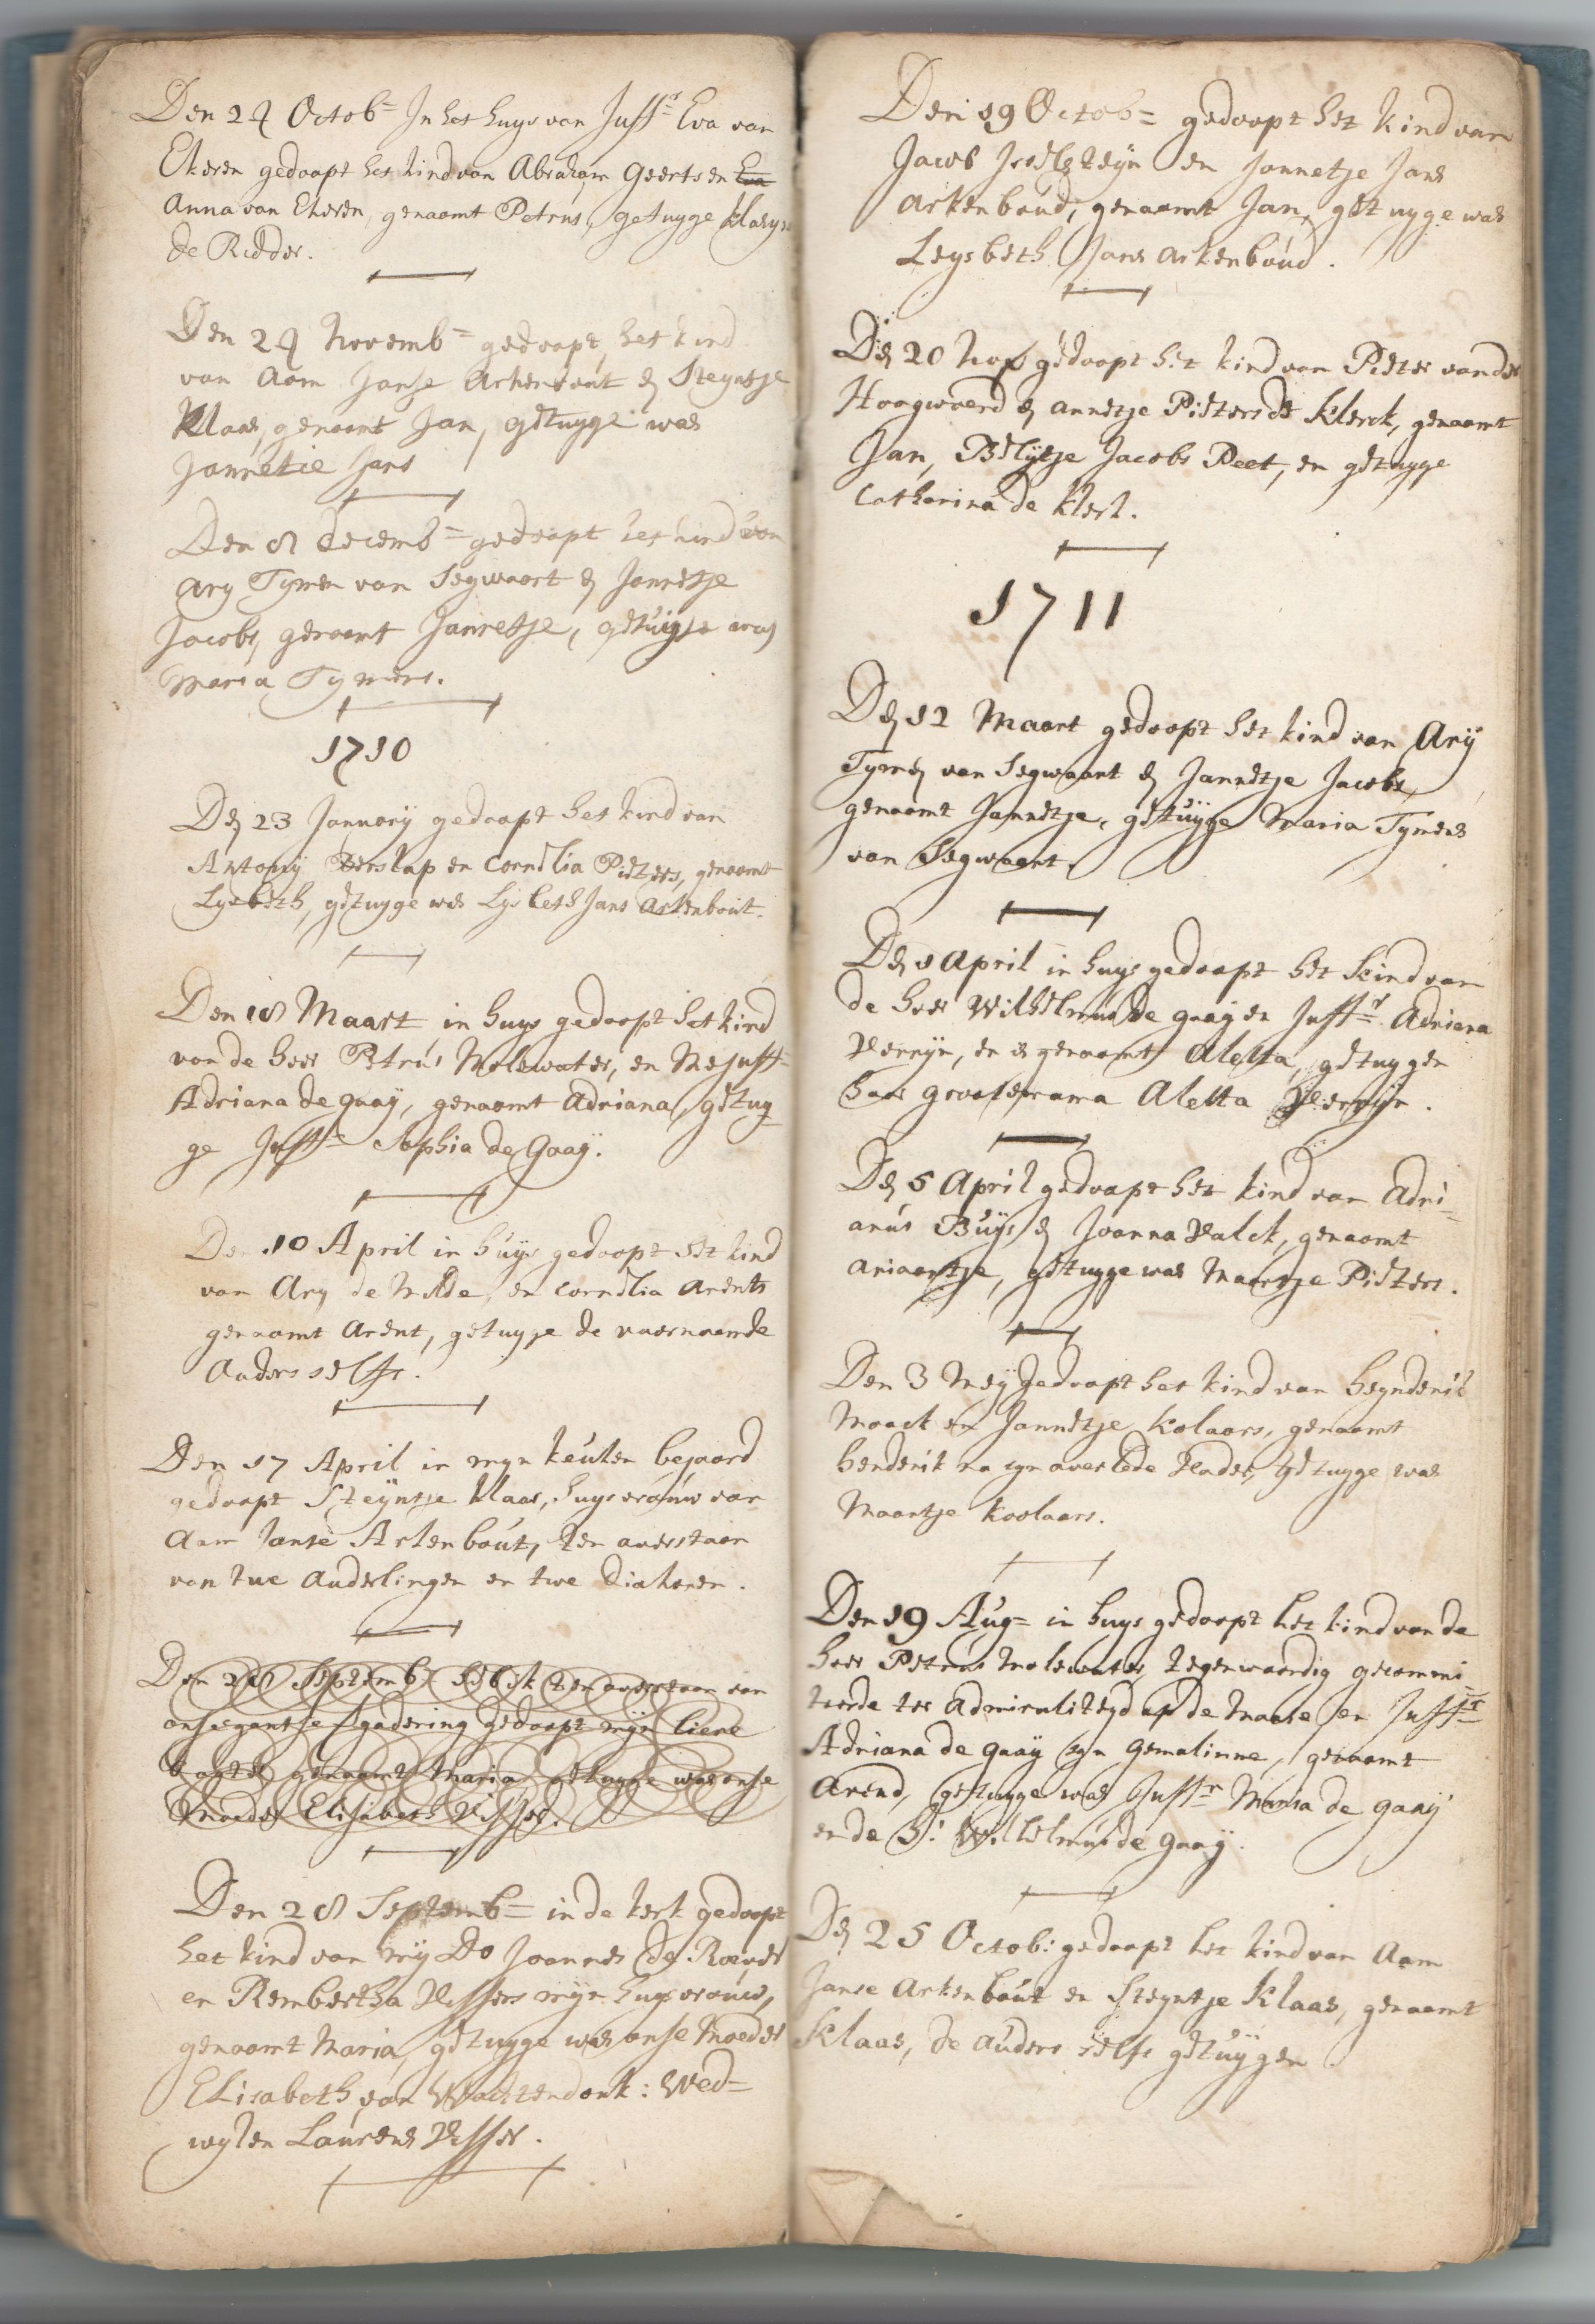 Den 24 Octob= In het huys van Juffr Eva van
Ekeren gedoopt het kind van Abraham Geertsen Eva
Anna van Ekeren, genaamt Petrus, getuyge Klasyn
de Ridder.
Den 24 Novemb= gedoopt het kind
van Aam Janse Arkenbout en Steyntje
Klaas, genaamt Jan, getuyge was
Jannetie Jans
Den 8 decemb= gedoopt het kind van
Ary Tymen van Segwaart en Jannetje
Jacobs, genaamt Jannetje, getuige was
Maria Tymens.
1710
Den 23 January gedoopt het kind van
Antony en Cornelia Pieters, genaamt
Lysbeth, getuyge was Lysbeth Jans Arkenbout.
Den 18 Maart in huys gedoopt het kind
van de heer Petrus Molewater, en Mejuff=
Adriana de Gaaÿ, genaamt Adriana, getuy
ge Juff= Sophia de Gaaÿ.
Den 10 April in huys gedoopt het kind
van Ary de Wilde, en Cornelia Arents
genaamt Arent, getuyge de voornaamde
Ouders selfs.
Den 17 April in myn keuken bejaard
gedoopt Steyntje Klaas, huysvrouw van
Aam Janse Arkenbout, ten overstaan
van twe Ouderlingen en twe Diakenen.
Den 28 Septemb ten overstaan van
onse gantse gadering gedoopt myn lieve
dogter genaamt Maria getuyge was onse
Moeder Elisabeth Visser.
Den 28 Septemb= in de kerk gedoopt
het kind van mÿ Do Joannes de
en Rembertha Vissers mÿn huysvrouw,
genaamt Maria, getuyge was onse Moeder
Elisabeth van Wachtendonk: Wed=
wylen Laurens Visser.
Den 19 Octob= gedoopt het kind van
Jacob Isselsteyn en Jannetje Jans
Arkenboud, genaamt Jan, getuyge was
Leysbeth Jans Arkenboud.
Den 20 Nov gedoopt het kind van Pieter vander
Hoogwoerd en Annetje Pieters de Klerck, genaamt
Jan, Jacobs Peet, en getuyge
Catharina de Klerk.
1711
Den 12 Maart gedoopt het kind van Arÿ
Tymen van Segwaart en Jannetje Jacobs,
genaamt Jannetje, getuÿge Maria Tymens
van Segwaart
Den 1 April in huys gedoopt het kind van
de heer Wilhelmus de Gaay en Juffr Adriana
Verryn, en is genaamt Aletta, getuygen
haar grootemama Aletta Verryn.
Den 5 April gedoopt het kind van Adri=
anus Buÿs en Joanna Valck, genaamt
Ariaantje, getuyge was Maertje Pieters.
Den 3 Meÿ gedoopt het kind van Heynderik
Moack en Jannetje Kolaars, genaamt
Henderik na syn overlede Vader, getuyge was
Maartje Koolaars.
Den 19 Aug= in huys gedoopt het kind van de
heer Petrus Molewater, tegenwoordig gecommi=
teerde ter Admiraliteyd op de Maase en Juffr
Adriana de Gaaÿ syn Gemalinne, genaamt
Arend, getuyge was Juffr Maria de Gaaÿ
en de Hr Wilhelmus de Gaaÿ.
Den 25 Octob: gedoopt het kind van Aam
Janse Arkenbout en Steyntje Klaas, genaamt
Klaas, de ouders selfs getuÿgen